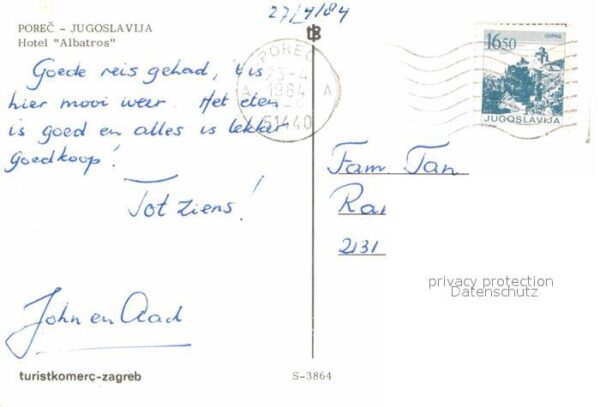 27/4/84
POREČ – JUGOSLAVIJA
Hotel "Albatros"
Goede reis gehad, 't is
hier mooi weer. Het eten
is goed en alles is lekker
goedkoop!
Tot ziens!
John en Aad
turistkomerc-zagreb
S-3864
POREČ
1984
A A
51440
16.50
JUGOSLAVIJA
Fam. Tan
Ra
2131
privacy protection
Datenschutz